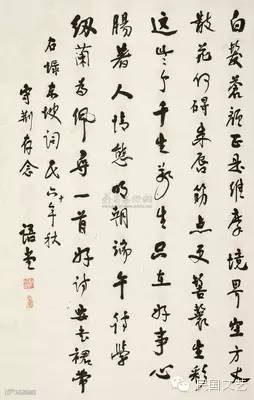 白髮蒼顏正是維摩境界空方丈
散花何碍朱唇筯点更髻鬟生彩
這些个千生萬生只在好事心
腸着人情態明朝端午待學
紉蘭為佩尋一首好詩要書裙帶
右録東坡詞民六十年秋
守荆存念
語堂
民国文艺